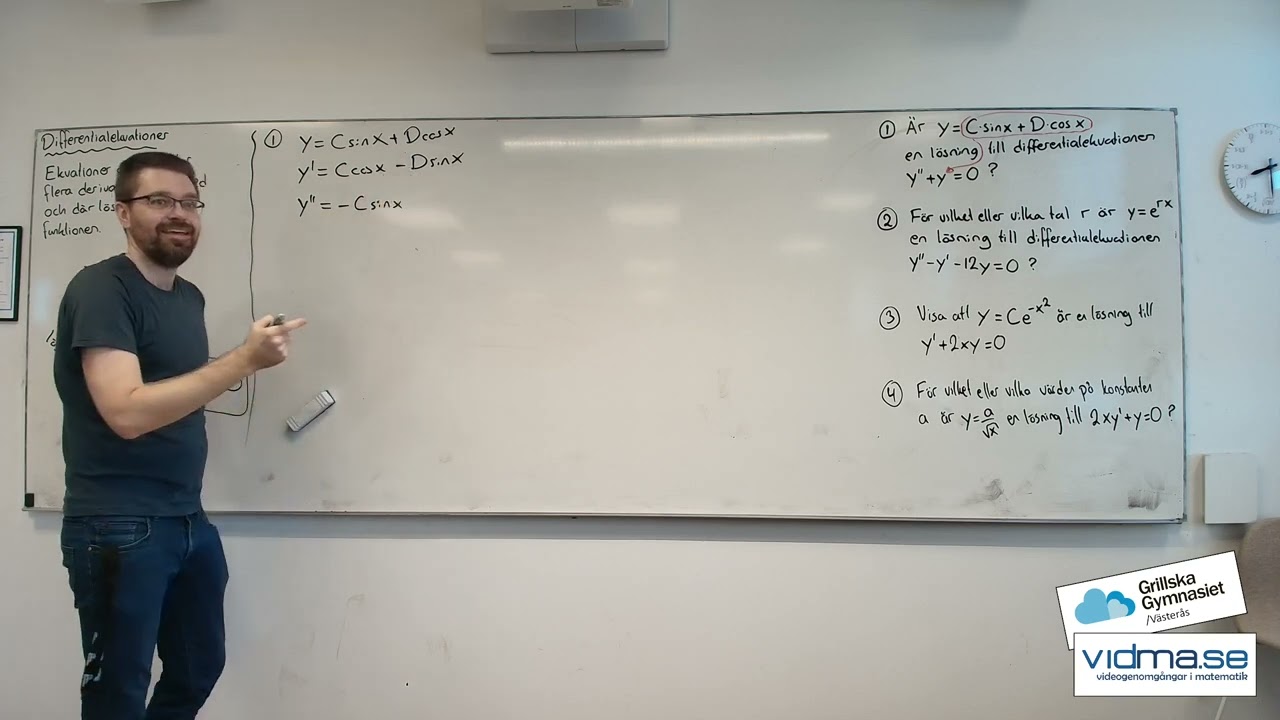 Differentialekvationer
Ekvationer
flera deriva
och där lös
funktionen.
① y = C sin x + D cos x
y' = C cos x - D sin x
y'' = - C sin x
① Är y = C·sin x + D·cos x
en lösning till differentialekvationen
y'' + y = 0 ?
② För vilket eller vilka tal r är y = e^{rx}
en lösning till differentialekvationen
y'' - y' - 12y = 0 ?
③ Visa att y = Ce^{-x²} är en lösning till
y' + 2xy = 0
④ För vilket eller vilka värden på konstanten
a är y = a/√x en lösning till 2xy' + y = 0 ?
Grillska
Gymnasiet
/Västerås
vidma.se
videogenomgångar i matematik